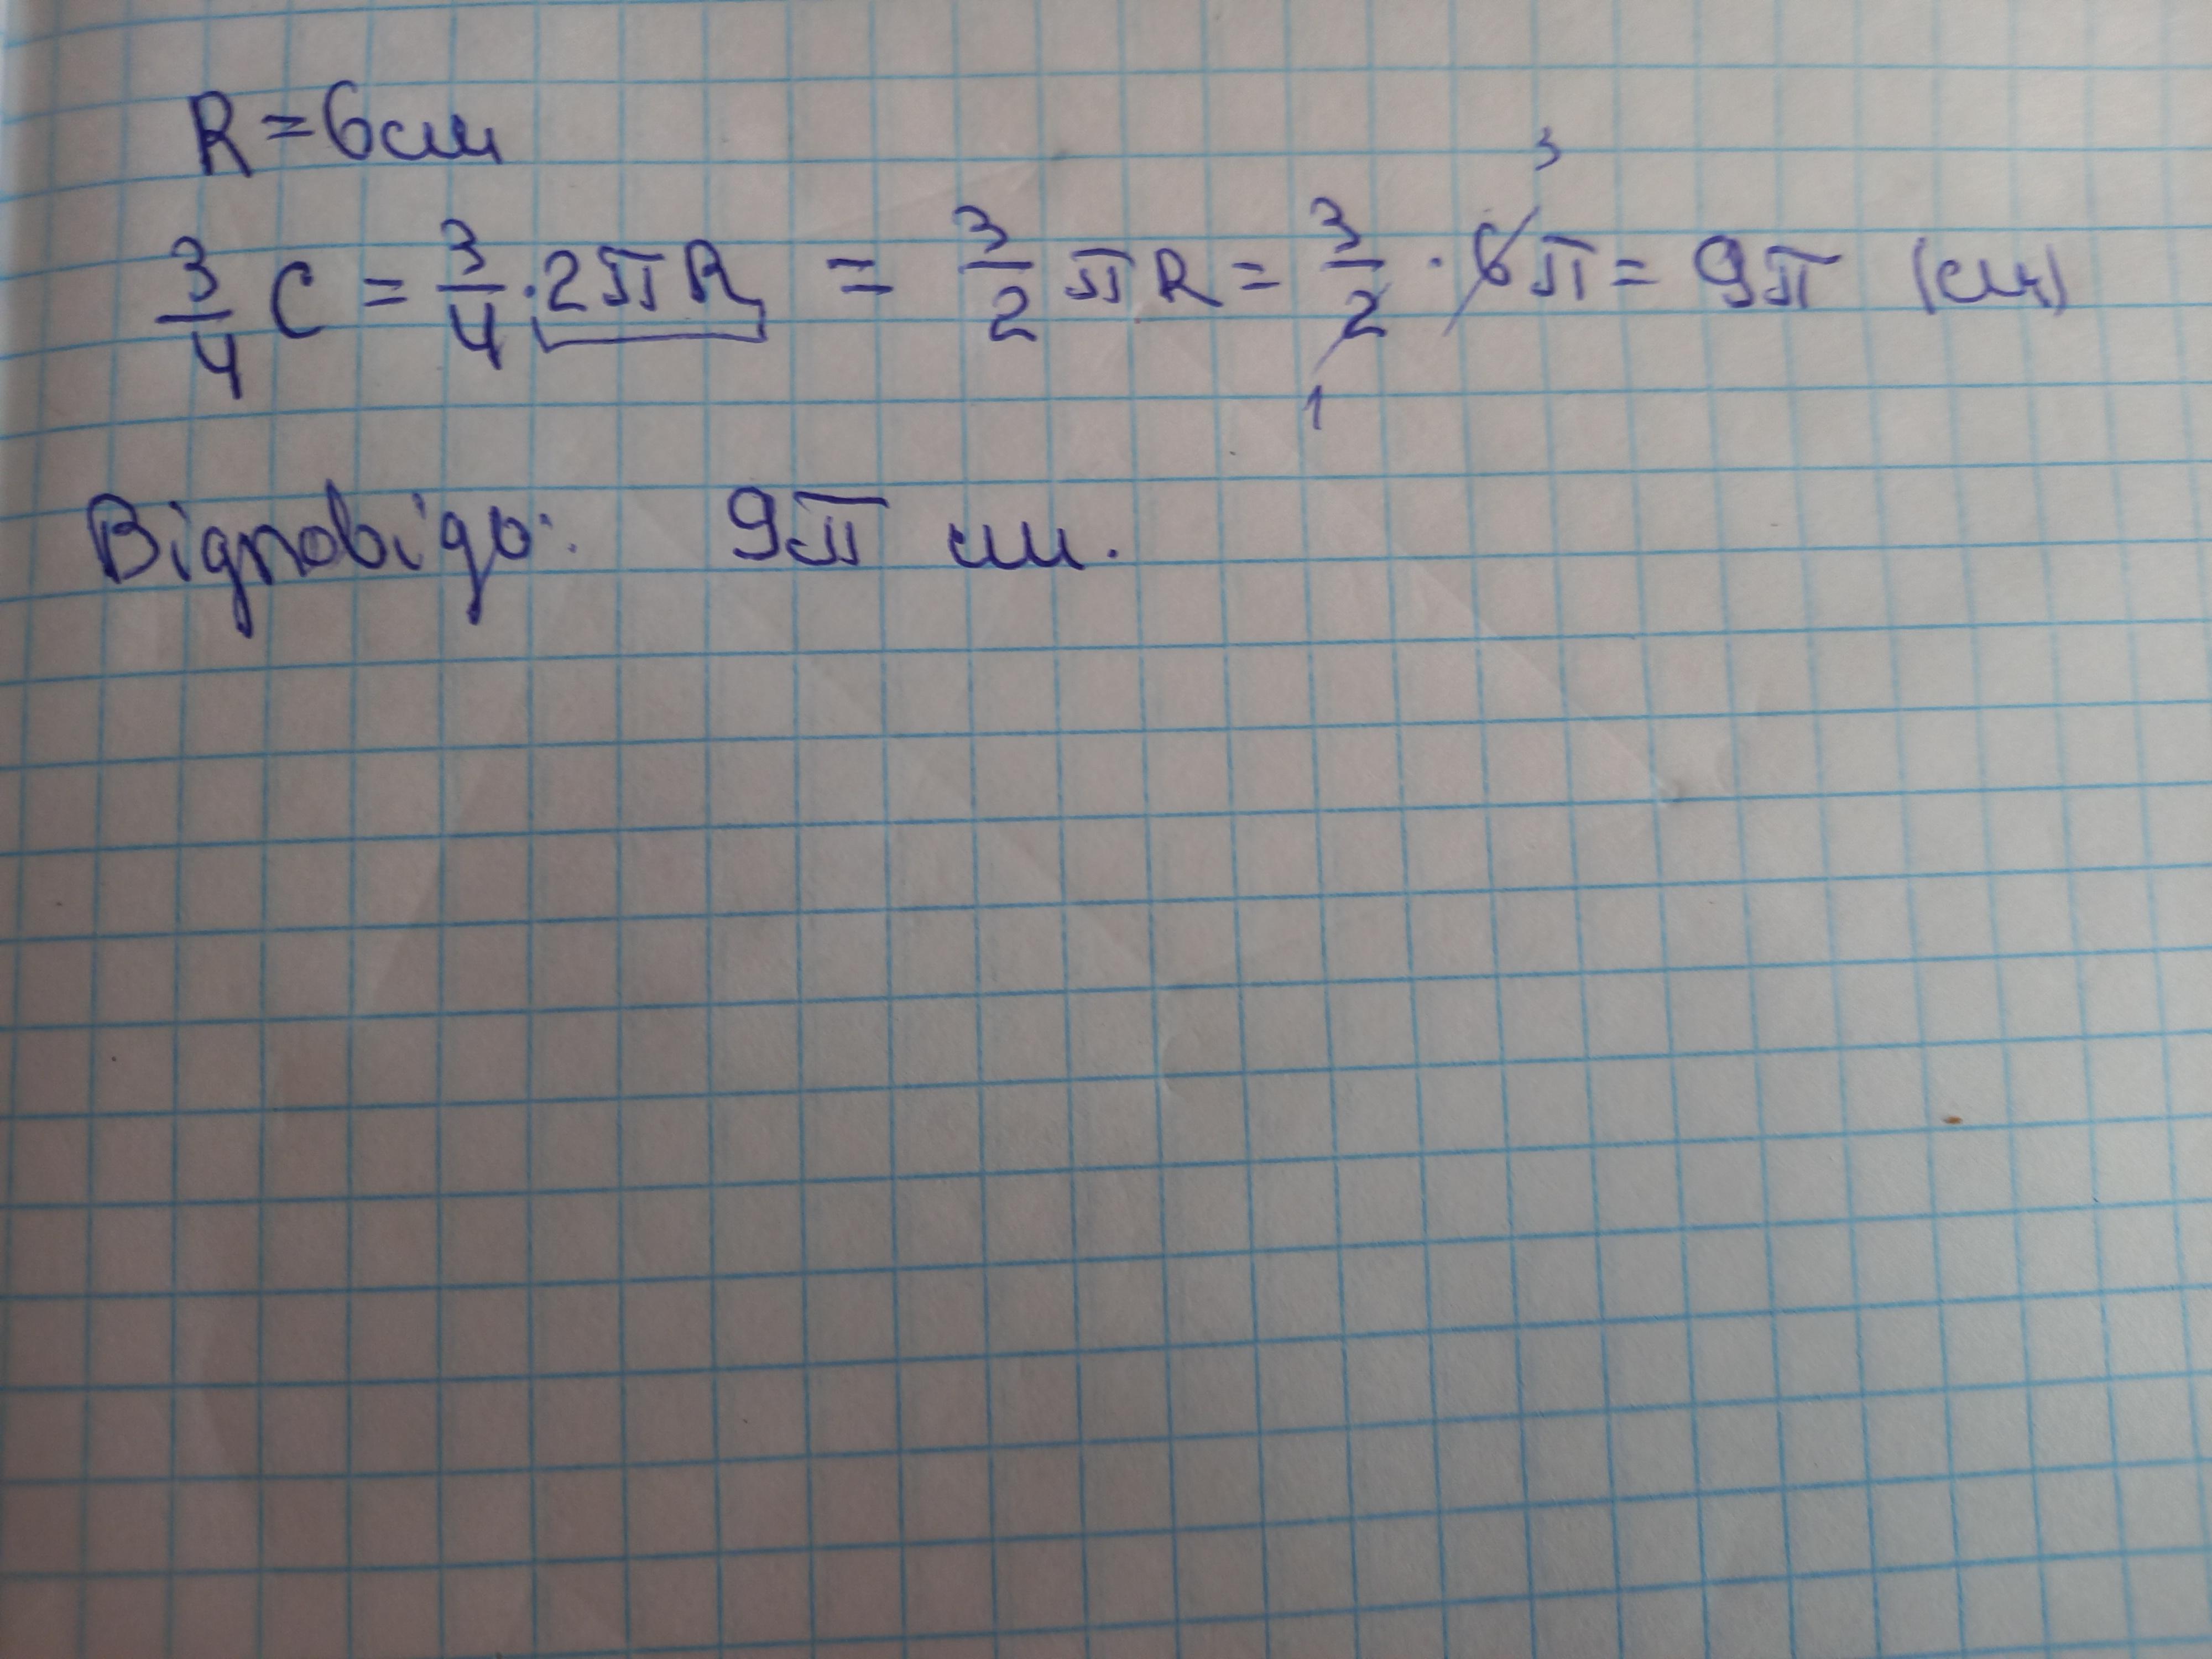 R = 6 см
3/4 C = 3/4 · 2πR = 3/2 πR = 3/2 · 6π = 9π (см)
3
1
Відповідь: 9π см.